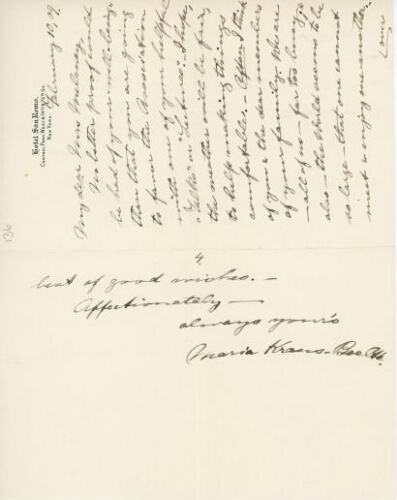 Hotel San Remo,
Central Park West & 74th & 75th Sts
New York.
February 10, 09.
My dear Miss Meloney.
No better proof could
be had of your well being
than that you are going
to favor the Association
with one of your helpful
"Talks" or "Lectures". I hope,
the weather will be fair,
to help making things
comfortable. – Often I think
of you & the dear members
of your family. We are
– all of us – far too busy,
also – the World seems to be
so large – that one cannot
meet & enjoy one another.
4.
best of good wishes. –
Affectionately –
always your's
Maria Kraus-Boelté.
136